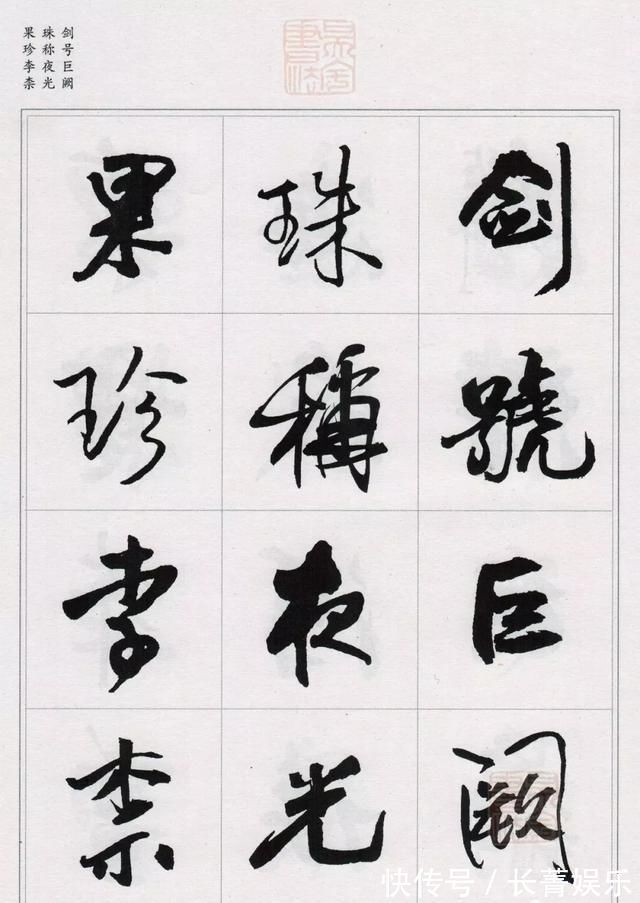 剑号巨阙
珠称夜光
果珍李柰
劍號巨闕
珠稱夜光
果珍李柰
快传号／长菁娱乐